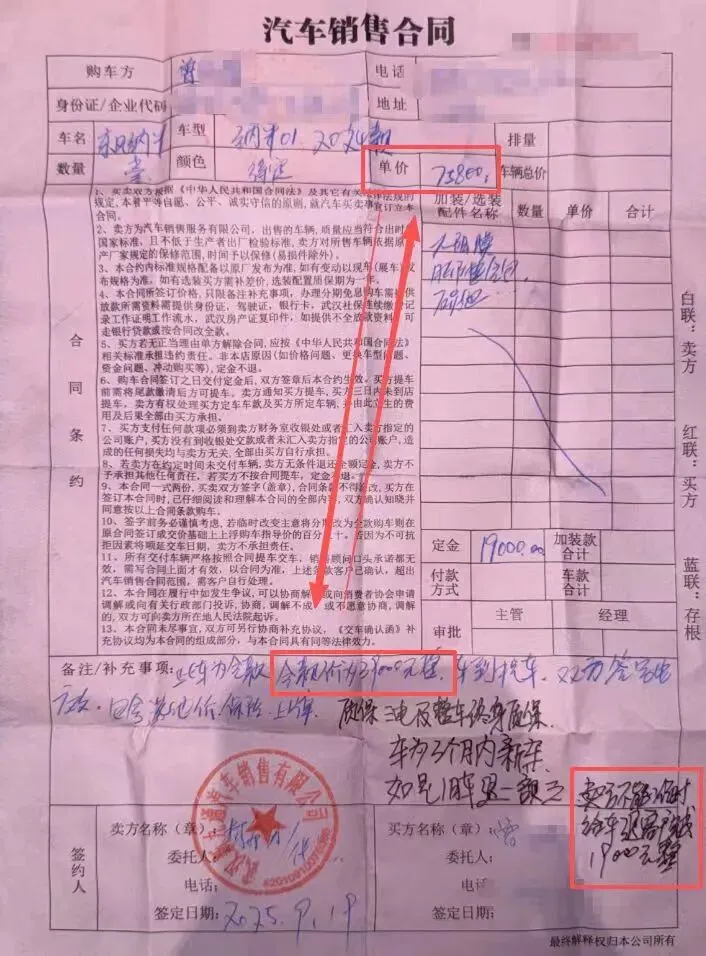 汽车销售合同
购车方 曾 电话
身份证/企业代码 地址
车名 东风纳米 车型 纳米01. 2024款 排量
数量 壹 颜色 单价 75800. 车辆总价
1、买卖双方根据《中华人民共和国合同法》及其它有关法律法规的
规定,本着平等自愿、公平、诚实守信的原则,就汽车买卖事宜订立本
2、卖方为汽车销售服务有限公司,出售的车辆,质量应当符合出时
国家标准,且不低于生产者出厂检验标准,卖方对所售车辆依据原
产厂家规定的保修范围,时间予以保修(易损件除外)。
3、本合约内标准规格配备以原厂发布为准,如有变动以现车(展车)发
布规格为准。如有选装买方需补差价,选装配置质保期为一年。
4、本合同所签订价格,只限备注补充事项,办理分期免息购车需提供
放款所需资料需提供身份证,驾驶证,银行卡,武汉社保连续缴纳记
录工作证明工作流水,武汉房产证复印件,如提供不全放款资料,可
走银行贷款或按合同改全款。
5、买方若无正当理由单方解除合同,应按《中华人民共和国合同法》
相关标准承担违约责任。非本店原因(如价格问题、更换车型问题、
资金问题、冲动购买等),定金不退。
6、购车合同签订之日交付定金后,双方签章后本合约生效。买方提车
前需将尾款缴清后方可提车。卖方通知买方提车,买方三日内未到店
提车,卖方有权处理买方定车车款及买方所定车辆,并由此产生的费
用及后果全部由买方承担。
7、买方支付任何款项必须到卖方财务室收银处或者汇入卖方指定的
公司账户,买方没有到收银处交款或者未汇入卖方指定的公司账户,造
成的任何损失均与卖方无关,全部由买方自行承担。
8、若卖方在约定时间未交付车辆,卖方无条件退还全额定金,卖方不
予承担其他任何责任,若买方不按合同提车,定金不退。
9、本合同一式两份,买卖双方签字(盖章),合同条款不得修改,买方在
签订本合同时,已仔细阅读和理解本合同的全部内容,双方确认知晓并
同意按以上合同条款购车。
10、签字前务必谨慎考虑,若临时改变主意将分期改为全款购车则在
原合同签订成交价基础上上浮购车指导价的百分之十。若因为不可抗
拒因素将顺延交车日期,卖方不承担责任。
11、所有交付车辆严格按照合同提车交车,销售顾问口头承诺都无
效,需写合同上面才有效,以合同为准,上述条款客户已确认,超出
汽车销售合同范围,需客户自行处理。
12、本合同在履行中如发生争议,可以协商解决或向消费者协会申请
调解或向有关行政部门投诉,协商,调解不成,或不愿意协商,调解
的,双方可向卖方所在地人民法院起诉。
13、本合同未尽事宜,双方可另行协商补充协议,《交车确认函》补
充协议均为本合同的组成部分,与本合同具有同等法律效力。
合同条约
加装/选装配件名称 数量 单价 合计
太阳膜
定金 19000.00 加装款合计
付款方式 车款合计
审批 主管 经理
白联:卖方 红联:买方 蓝联:存根
备注/补充事项:此车为全款 全款价为39000元整. 车到提车. 双方签字生
效. 保险. 上牌. 质保三电及整车终身质保.
车为3个月内新车
如是旧车退一赔三
卖方不能按时
给车退客户钱
19000元整
签约人
卖方名称(章):
委托人:
电话:
签定日期: 2025.9.19
买方名称(章): 曾
委托人:
电话:
签定日期:
汽车销售有限公司
最终解释权归本公司所有